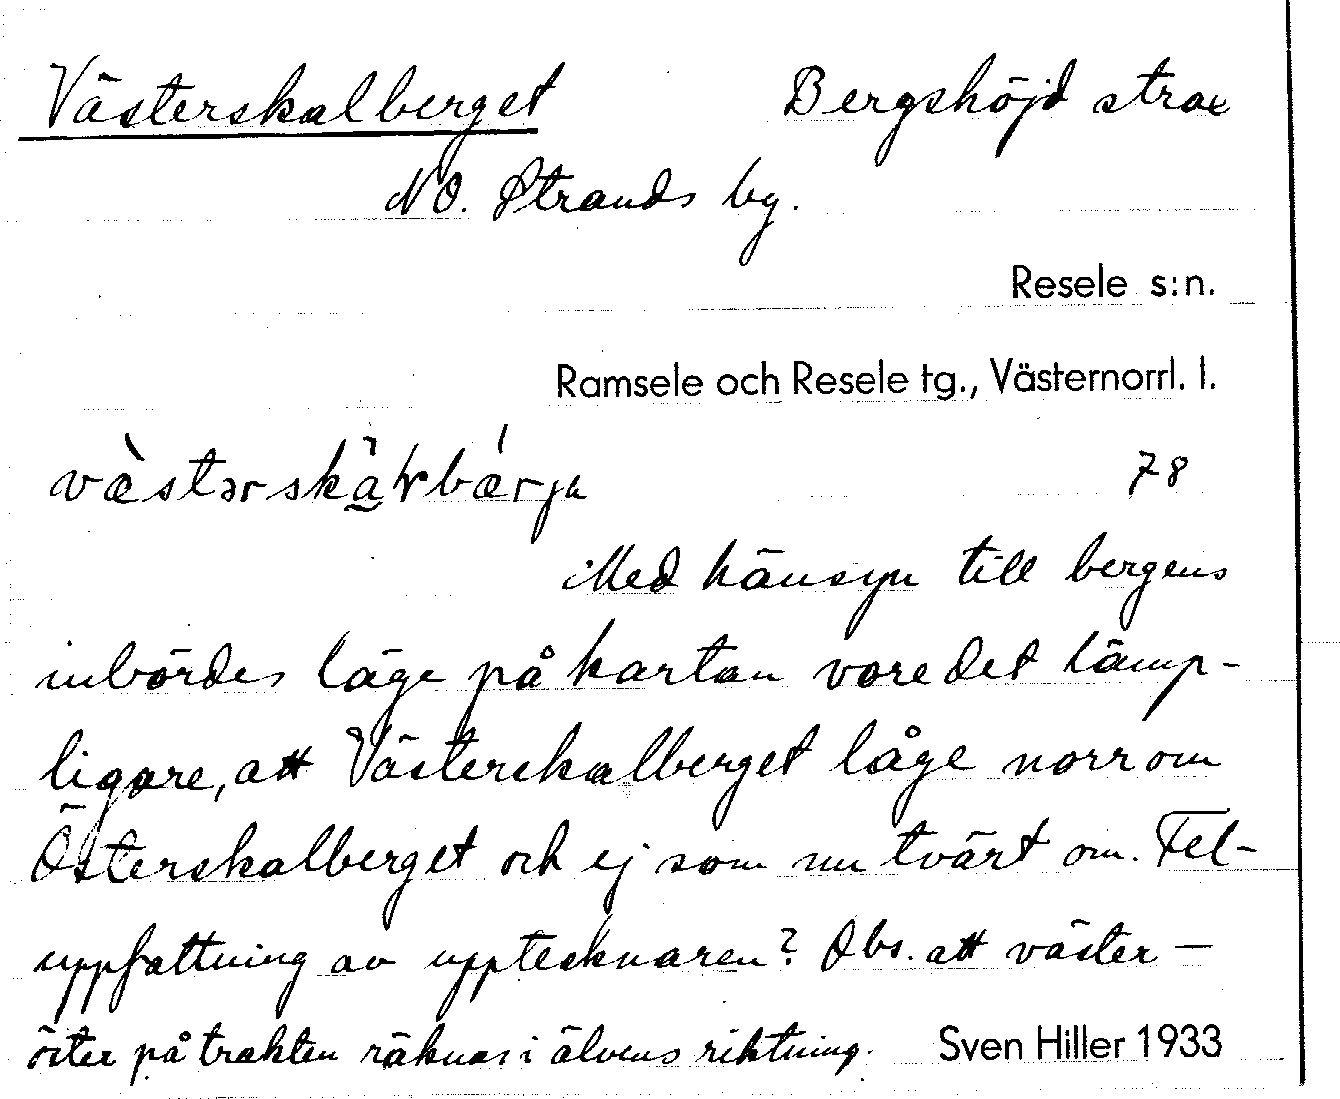 Västerskalberget Bergshöjd strax
NO. Strands by.
Resele s:n.
Ramsele och Resele tg., Västernorrl. l.
78
Med hänsyn till bergens
inbördes läge på kartan vore det lämp-
ligare, att Västerskalberget låge norr om
Österskalberget och ej som nu tvärt om. Fel-
uppfattning av upptecknaren? Obs. att väster –
öster på trakten räknas i älvens riktning. Sven Hiller 1933